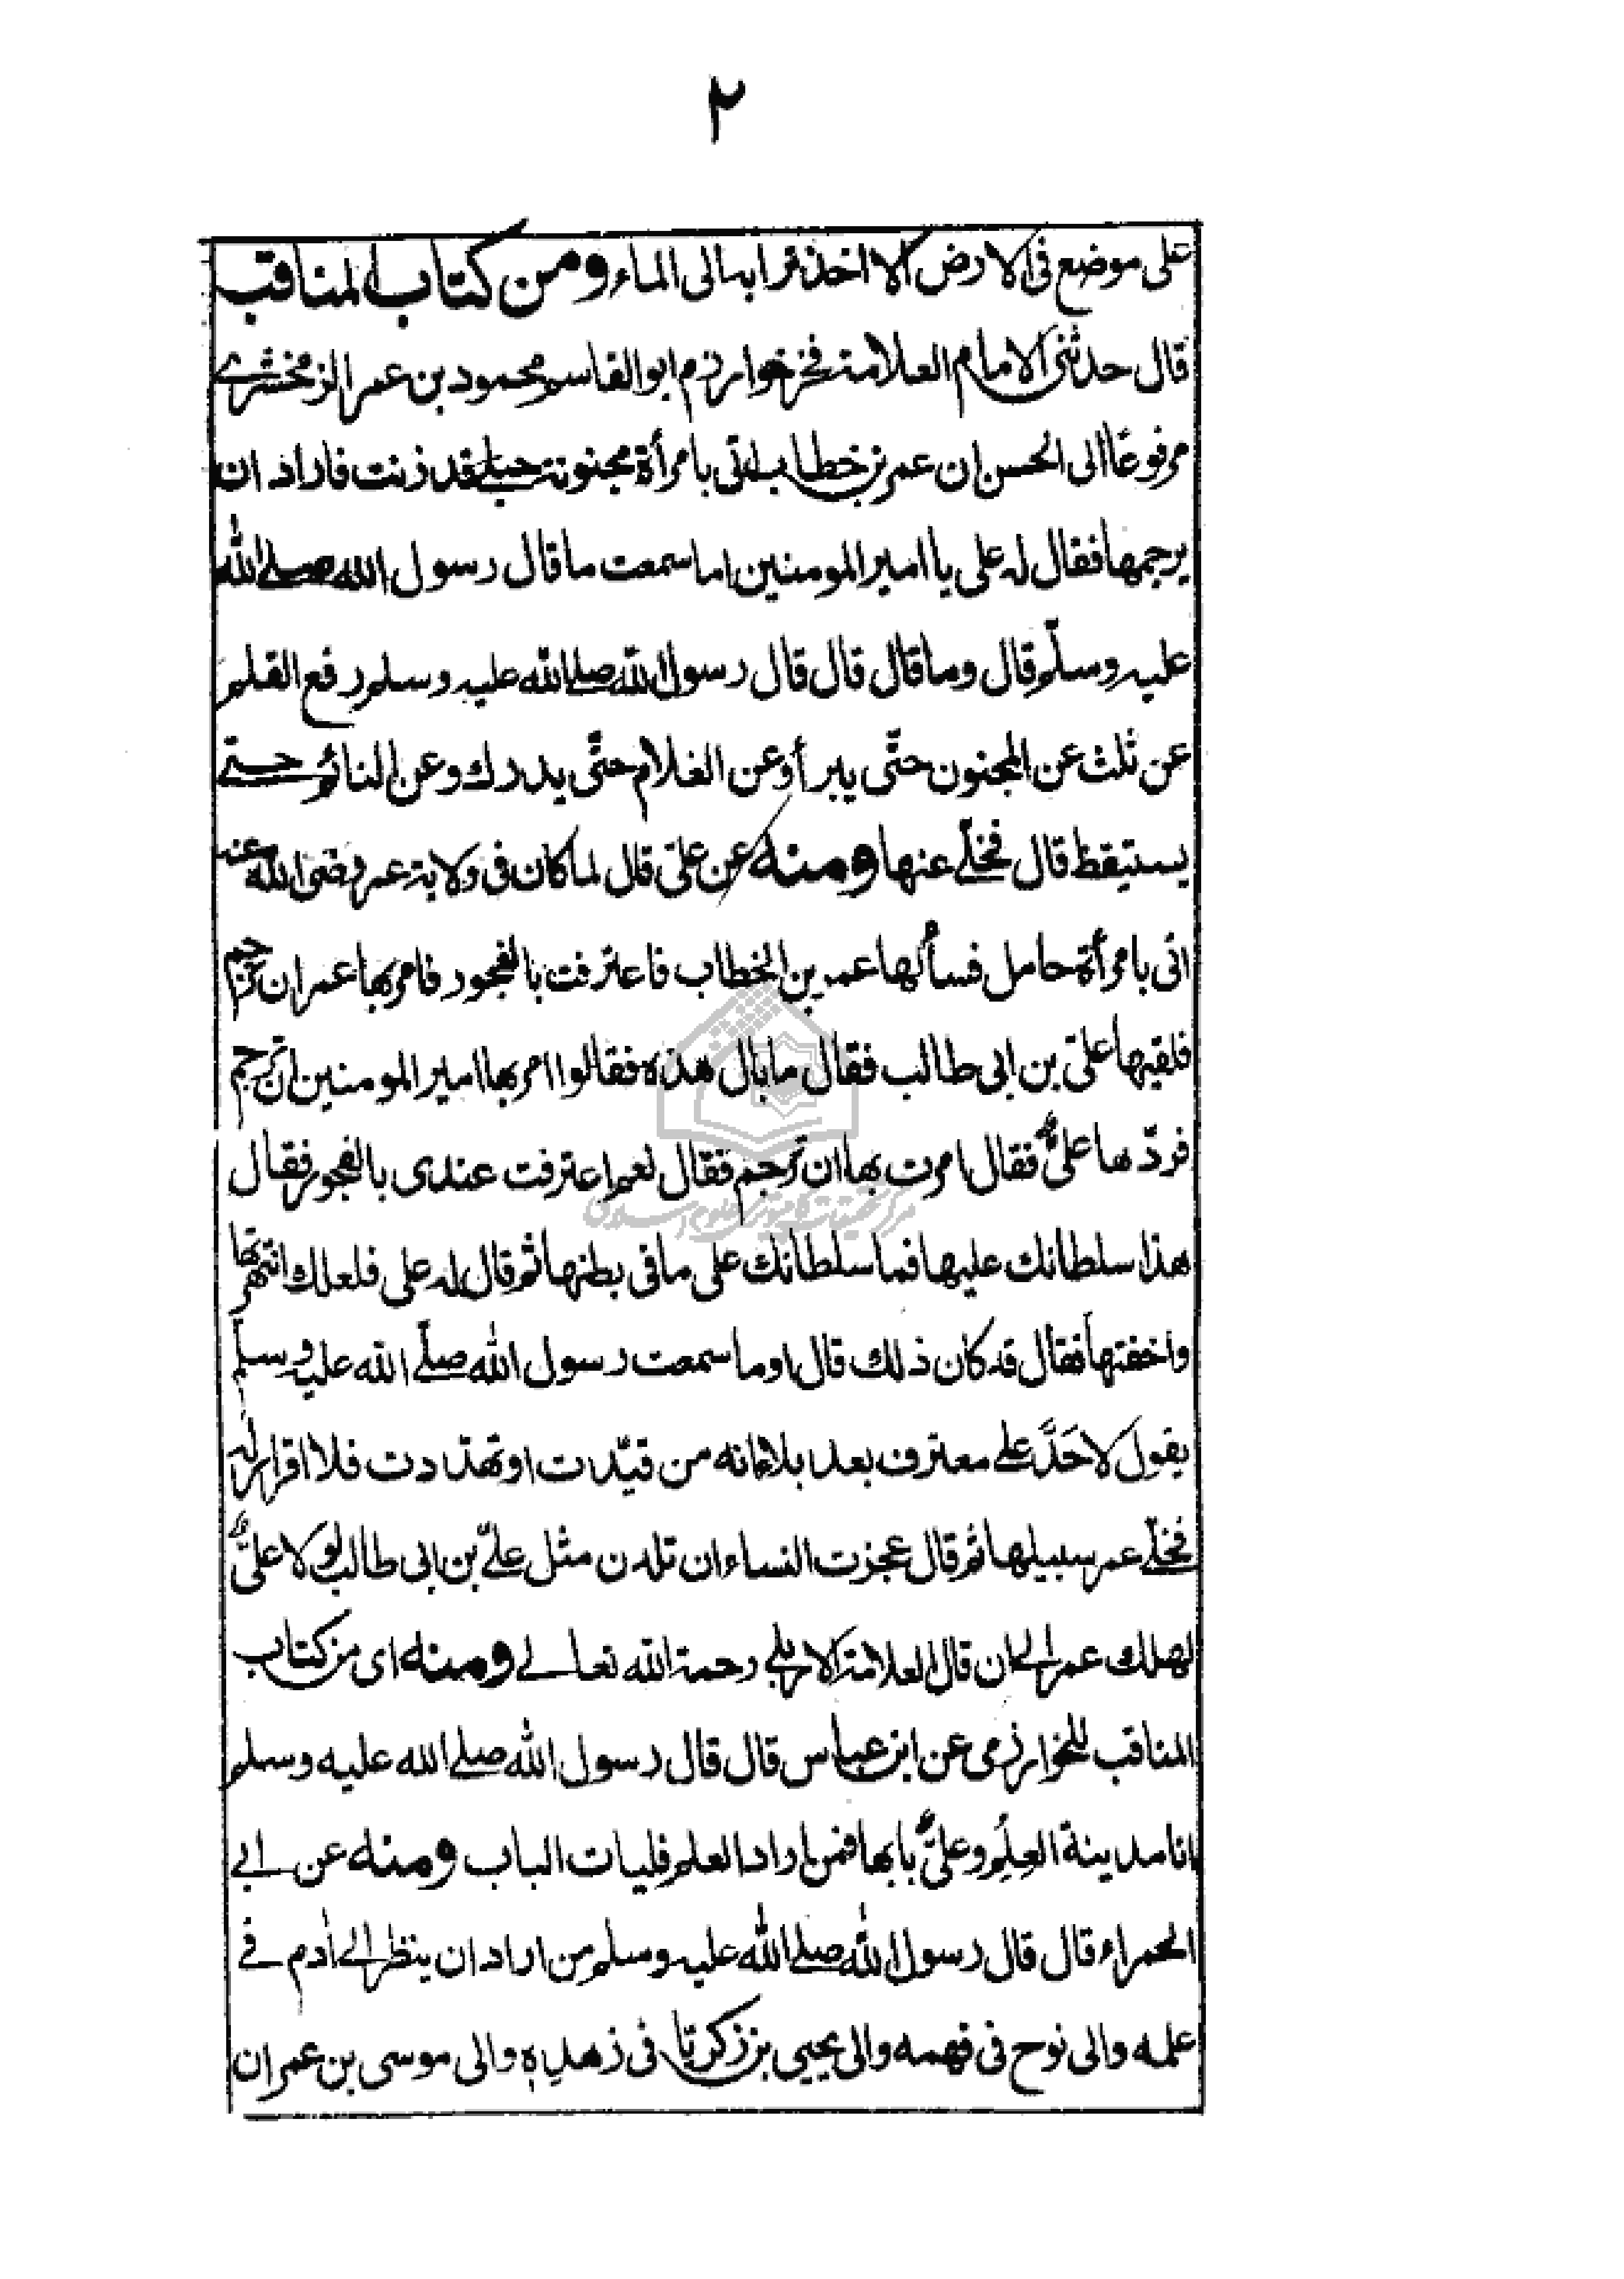 ٢
على موضع فى الارض الا اخذ ترابها الى الماء ومن كتاب المناقب
قال حدثنى الامام العلامة فخر خوارزم ابو القاسم محمود بن عمر الزمخشرى
مرفوعًا الى الحسن ان عمر بن خطاب اتى بامرأة مجنونة حبلى قد زنت فاراد ان
يرجمها فقال له على يا امير المومنين اما سمعت ما قال رسول الله صلى الله
عليه وسلّم قال وما قال قال قال رسول الله صلى الله عليه وسلم رفع القلم
عن ثلث عن المجنون حتّى يبرأ وعن الغلام حتّى يدرك وعن النائم حتى
يستيقظ قال فخلّى عنها ومنه عن علىّ قال لما كان فى ولاية عمر رضى الله عنه
اتى بامرأة حامل فسألها عمر بن الخطاب فاعترفت بالفجور فامر بها عمر ان ترجم
فلقيها علىّ بن ابى طالب فقال ما بال هذه فقالوا امر بها امير المومنين ان ترجم
فردّها علىٌّ فقال امرت بها ان ترجم فقال نعم اعترفت عندى بالفجور فقال
هذا سلطانك عليها فما سلطانك على ما فى بطنها ثم قال له على فلعلك انتهرتها
واخفتها فقال قد كان ذلك قال اوما سمعت رسول الله صلّى الله عليه وسلم
يقول لا حَدَّ على معترف بعد بلاء انه من قيّدت او تهدّدت فلا اقرار له
فخلّى عمر سبيلها ثم قال عجزت النساء ان تلدن مثل علىّ بن ابى طالب لولا علىٌّ
لهلك عمر الى ان قال العلامة الاربلى رحمة الله تعالى ومنه اى من كتاب
المناقب للخوارزمى عن ابن عباس قال قال رسول الله صلى الله عليه وسلم
انا مدينة العِلم وعلىٌّ بابها فمن اراد العلم فليات الباب ومنه عن ابى
الحمراء قال قال رسول الله صلى الله عليه وسلم من اراد ان ينظر الى اٰدم فى
علمه والى نوح فى فهمه والى يحيى بن زكريّا فى زهدِه والى موسى بن عمران
مركز تحقيقات كامپيوترى علوم اسلامى